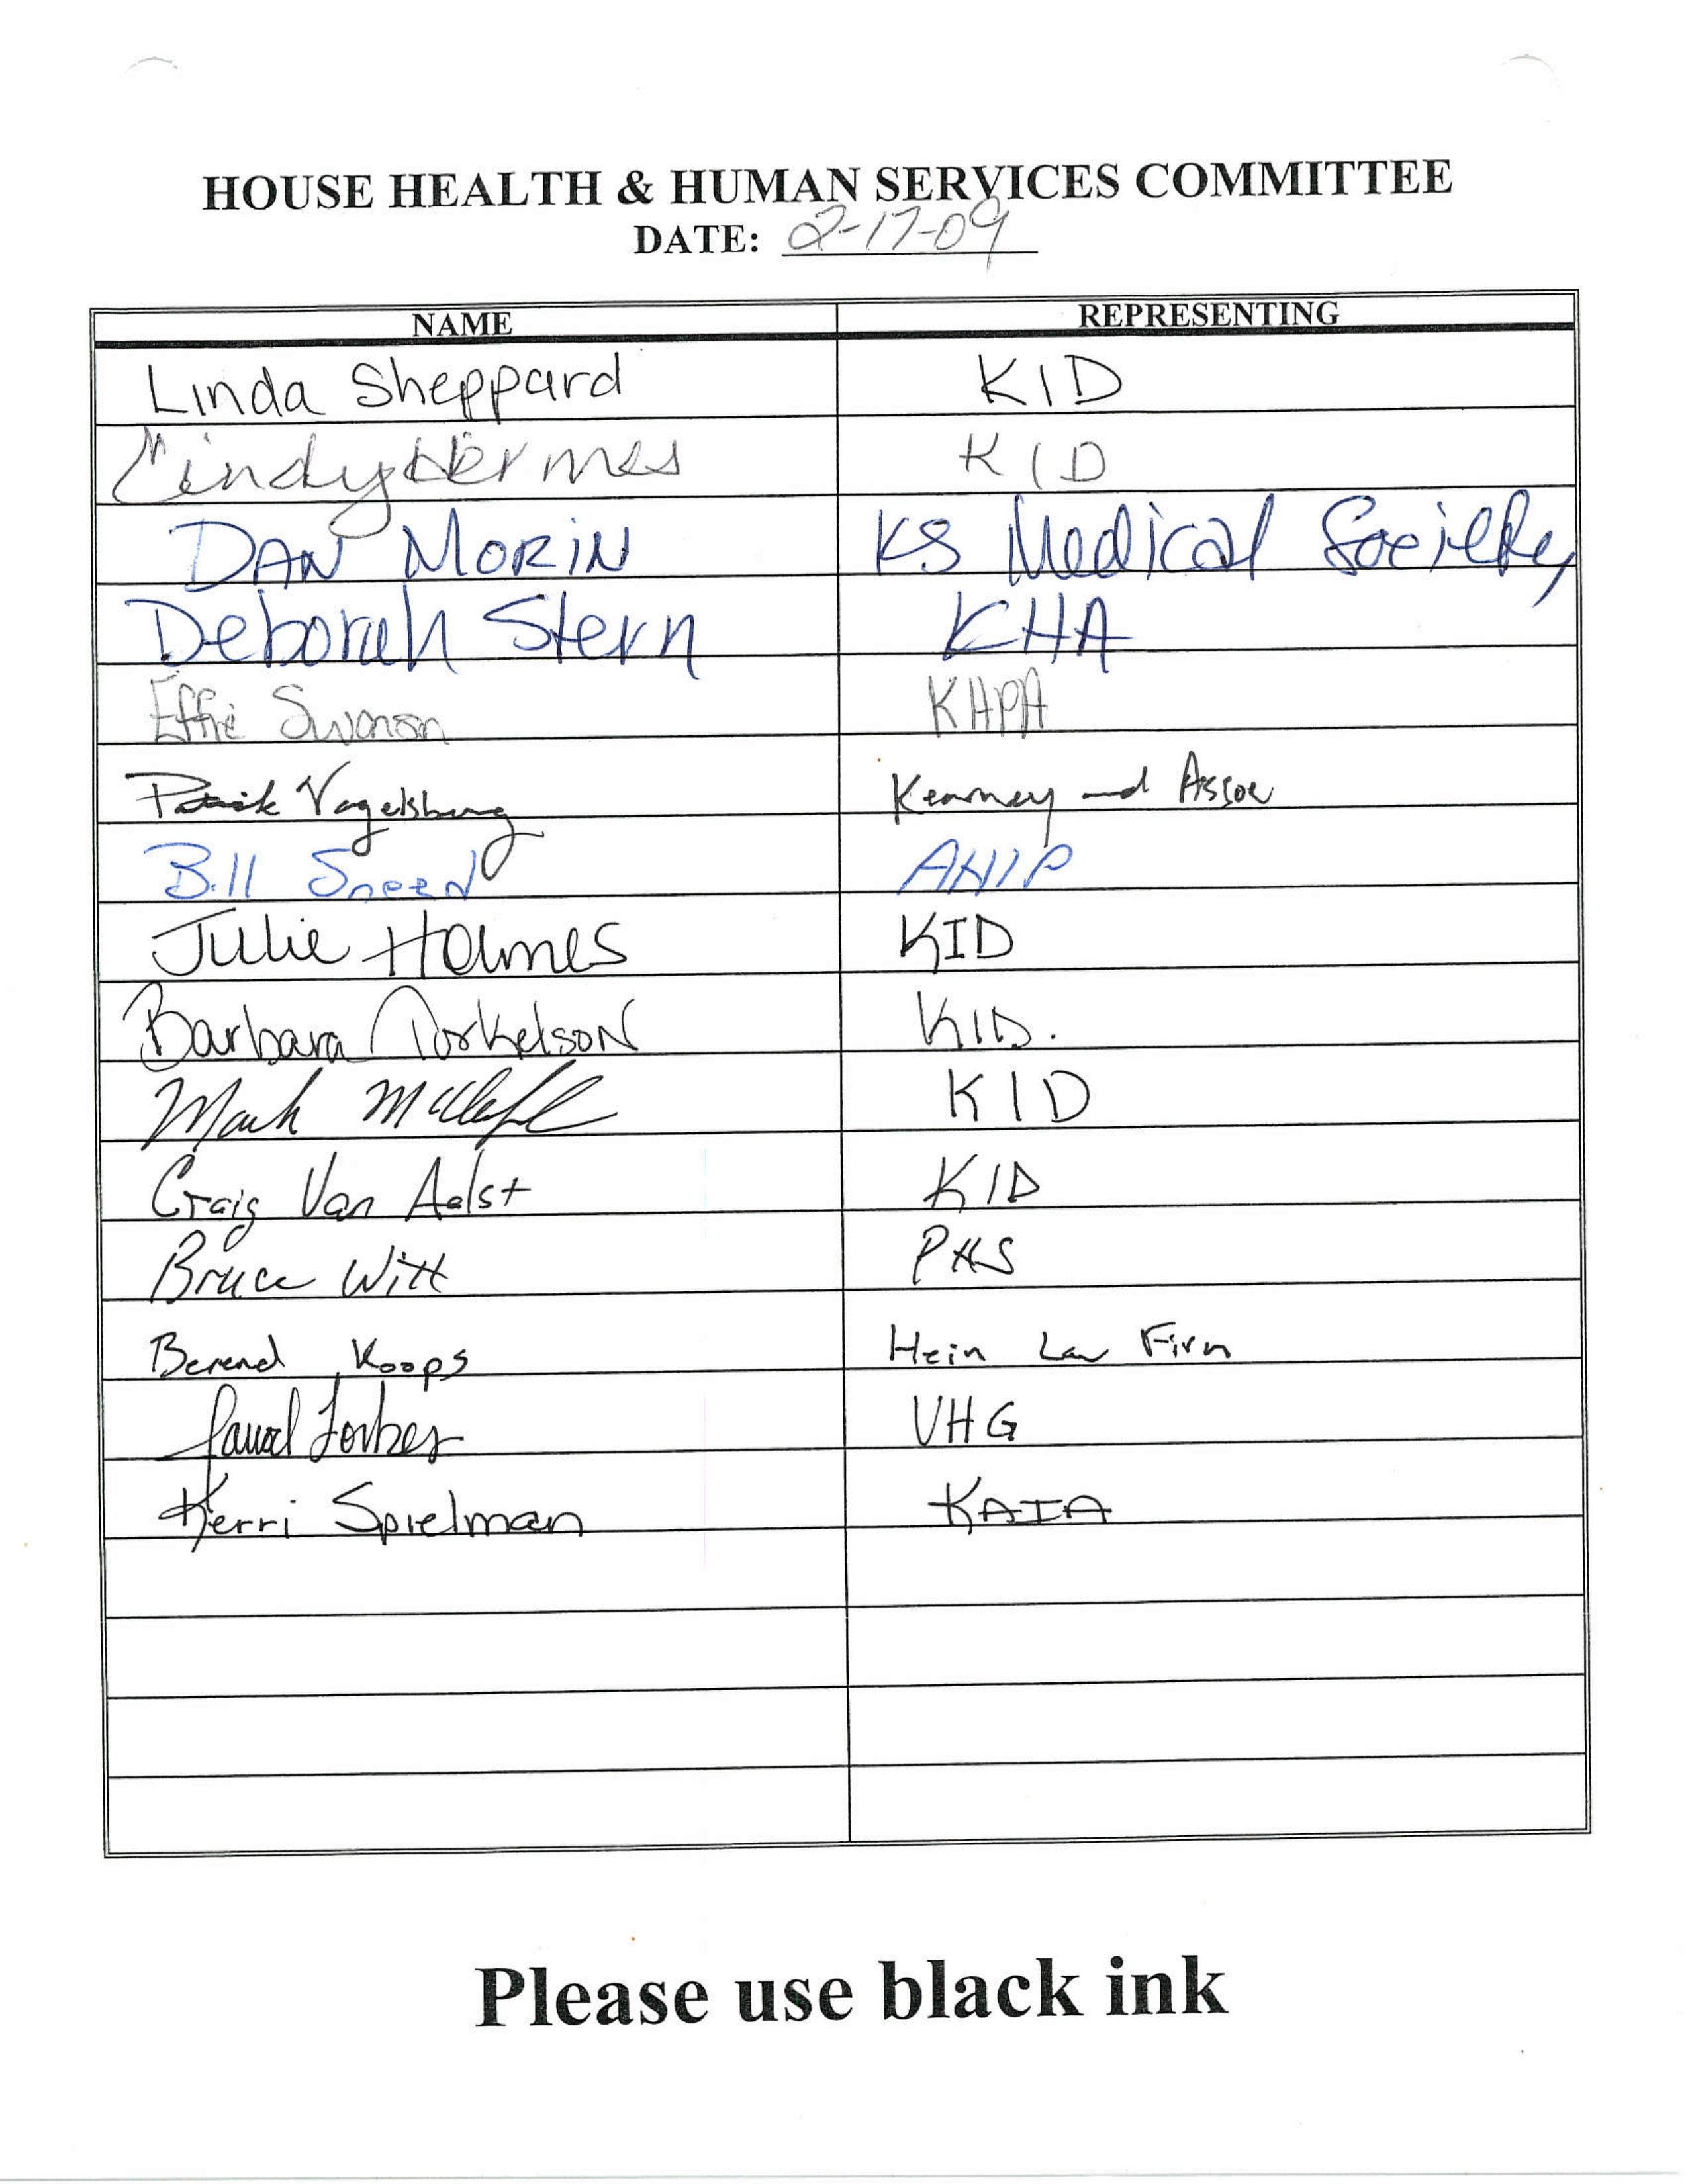 HOUSE HEALTH & HUMAN SERVICES COMMITTEE
DATE: 2-17-09
NAME REPRESENTING
Linda Sheppard KID
Cindy Hermes KID
DAN MORIN KS Medical Society
Deborah Stern KHA
Effie Swanson KHPA
Patrick Vogelsberg Kearney and Assoc
Bill Sneed AHIP
Julie Holmes KID
Barbara Torkelson KID.
Mark KID
Craig Van Aalst KID
Bruce Witt PHS
Berend Koops Hein Law Firm
Forbes VHG
Kerri Spielman KAIA
Please use black ink